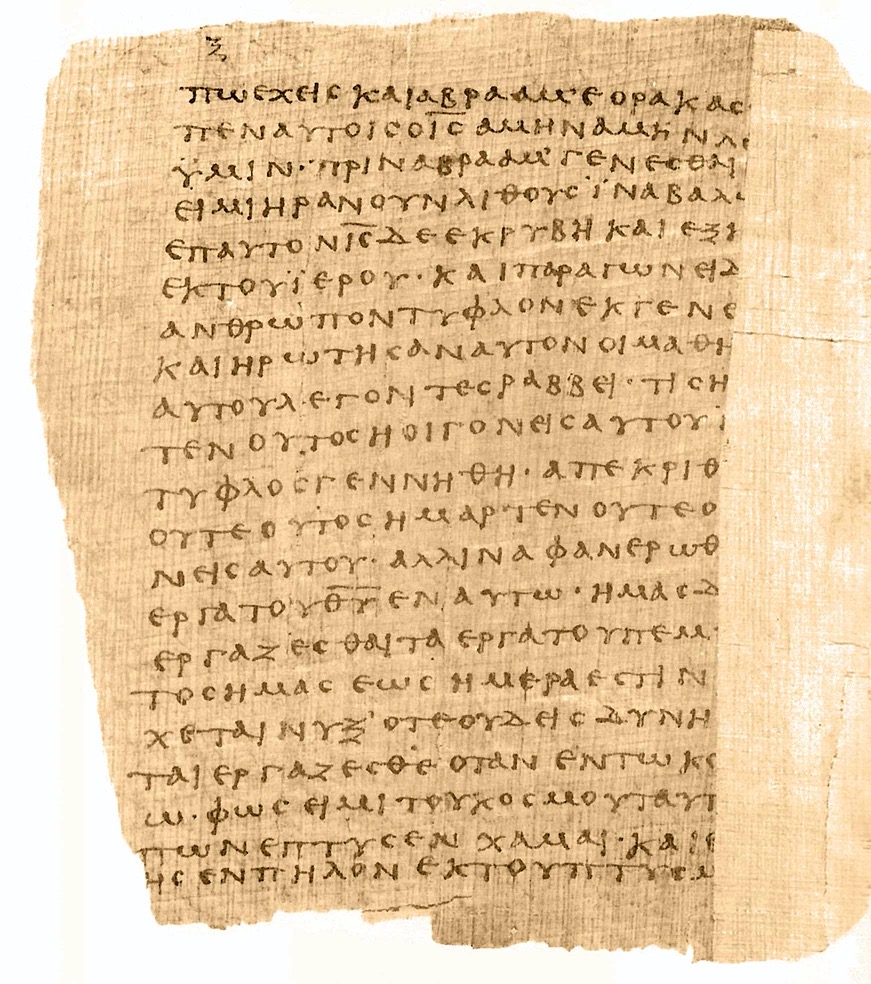 ξ
πωεχειςκαιαβρααμ᾽εορακας
πεναυτοιςο̅ι̅ς̅αμηναμην
ϋμιν·πριναβρααμ᾽γενεσθαι
ειμιηρανουνλιθουςϊναβαλ
επαυτονι̅ς̅δεεκρυβηκαιεξη
εκτουϊερου·καιπαραγωνειδ
ανθρωποντυφλονεκγενε
καιηρωτησαναυτονοιμαθη
αυτουλεγοντεςραββει·τιςη
τενουτοςηοιγονειςαυτουϊ
τυφλοςγεννηθη·απεκριθ
ουτεουτοςημαρτενουτεο
νειςαυτου·αλλιναφανερωθ
εργατουθ̅υ̅εναυτω·ημαςδ
εργαζεσθαιταεργατουπεμ
τοςημαςεωςημεραεστιν
χεταινυξ᾽οτεουδειςδυνη
ταιεργαζεσθεοτανεντωκο
ω·φωςειμιτουκοσμουταυτ
πωνεπτυσενχαμαι·καιε
ηςενπηλονεκτουπτυσμ